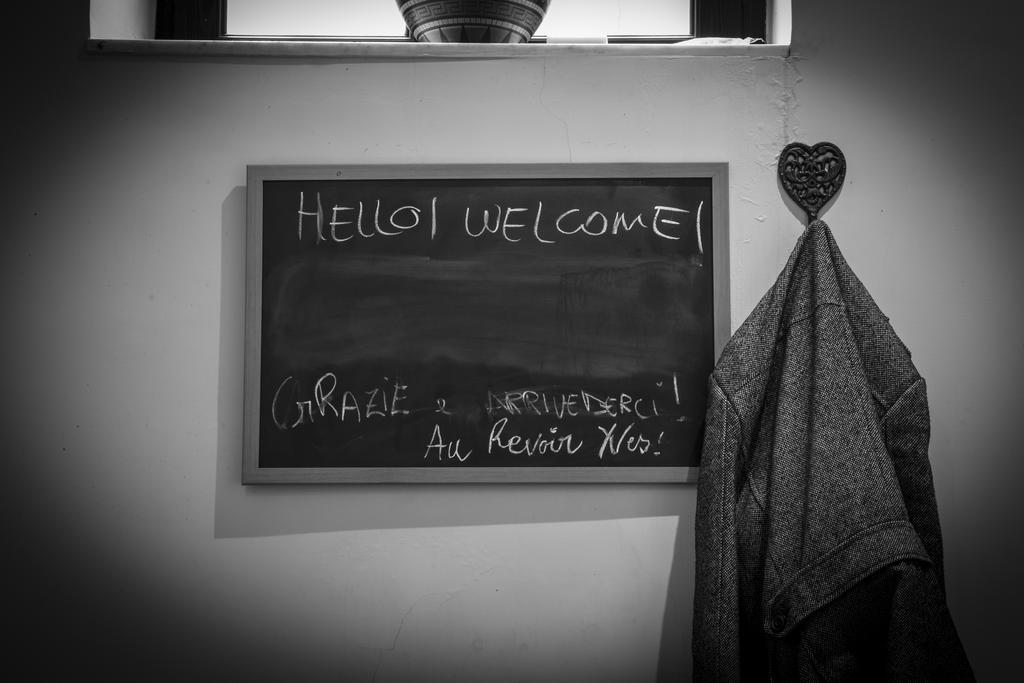 HELLO! WELCOME!
GRAZIE e ARRIVEDERCi!
Au Revoir Yves!